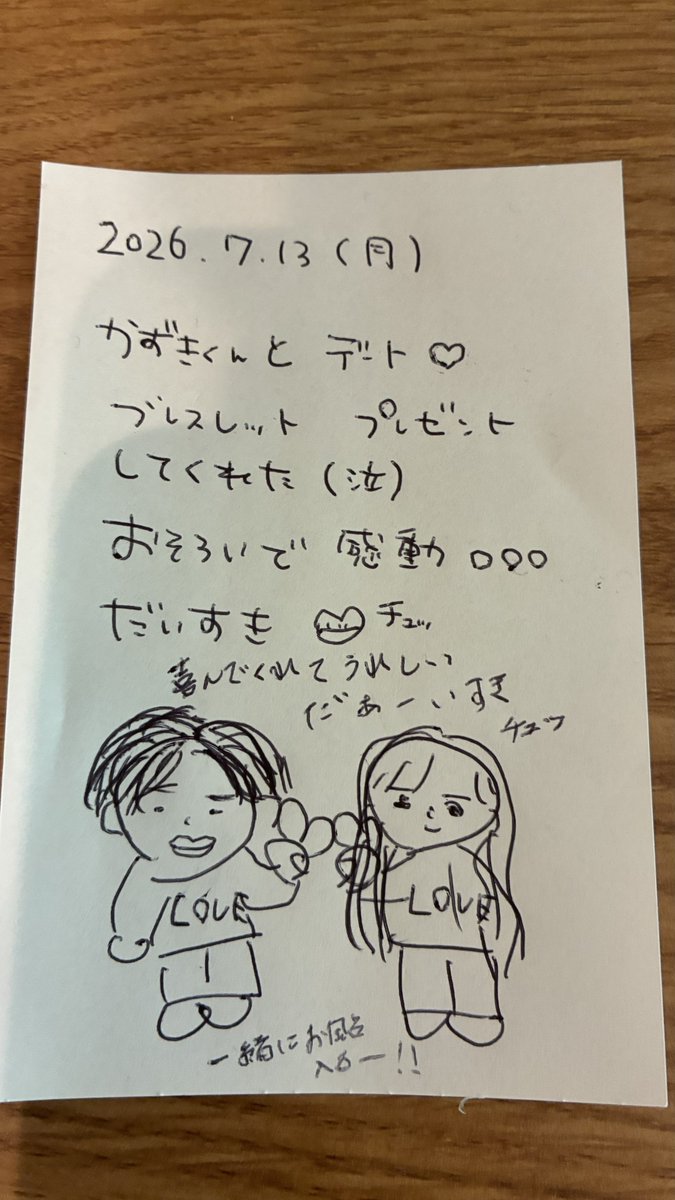 2026.7.13(月)
かずきくんと デート♡
ブレスレット プレゼント
してくれた(泣)
おそろいで 感動。。。
だいすき チュッ
喜んでくれてうれしい
だぁーいすき
チュッ
LOVE LOVE
一緒にお風呂
入るー!!